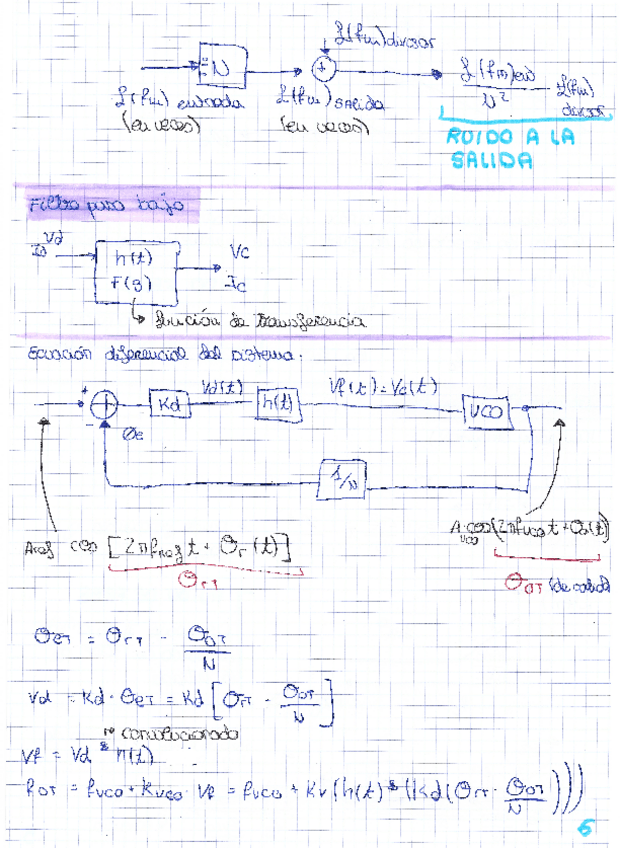 L(fm) divisor
÷ N
+
L(fm) en / N² + L(fm) divisor
L(fm) entrada
(en veces)
L(fm) SALIDA
(en veces)
RUIDO A LA
SALIDA
Filtro paso bajo
Vd
Id
h(t)
F(s)
Vc
Ic
función de transferencia
Ecuación diferencial del sistema:
+
-
Θe
Kd
Vd(t)
h(t)
Vf(t) = Vc(t)
VCO
1/N
Aref cos [2πfref t + Θr(t)]
ΘrT
Avco cos(2πfvco t + Θo(t))
ΘOT (de salida)
ΘeT = ΘrT - ΘOT/N
Vd = Kd · ΘeT = Kd [ΘrT - ΘOT/N]
convolucionado
Vf = Vd * h(t)
fOT = fvco + Kvco · Vf = fvco + Kv(h(t) * (Kd(ΘrT - ΘOT/N)))
5